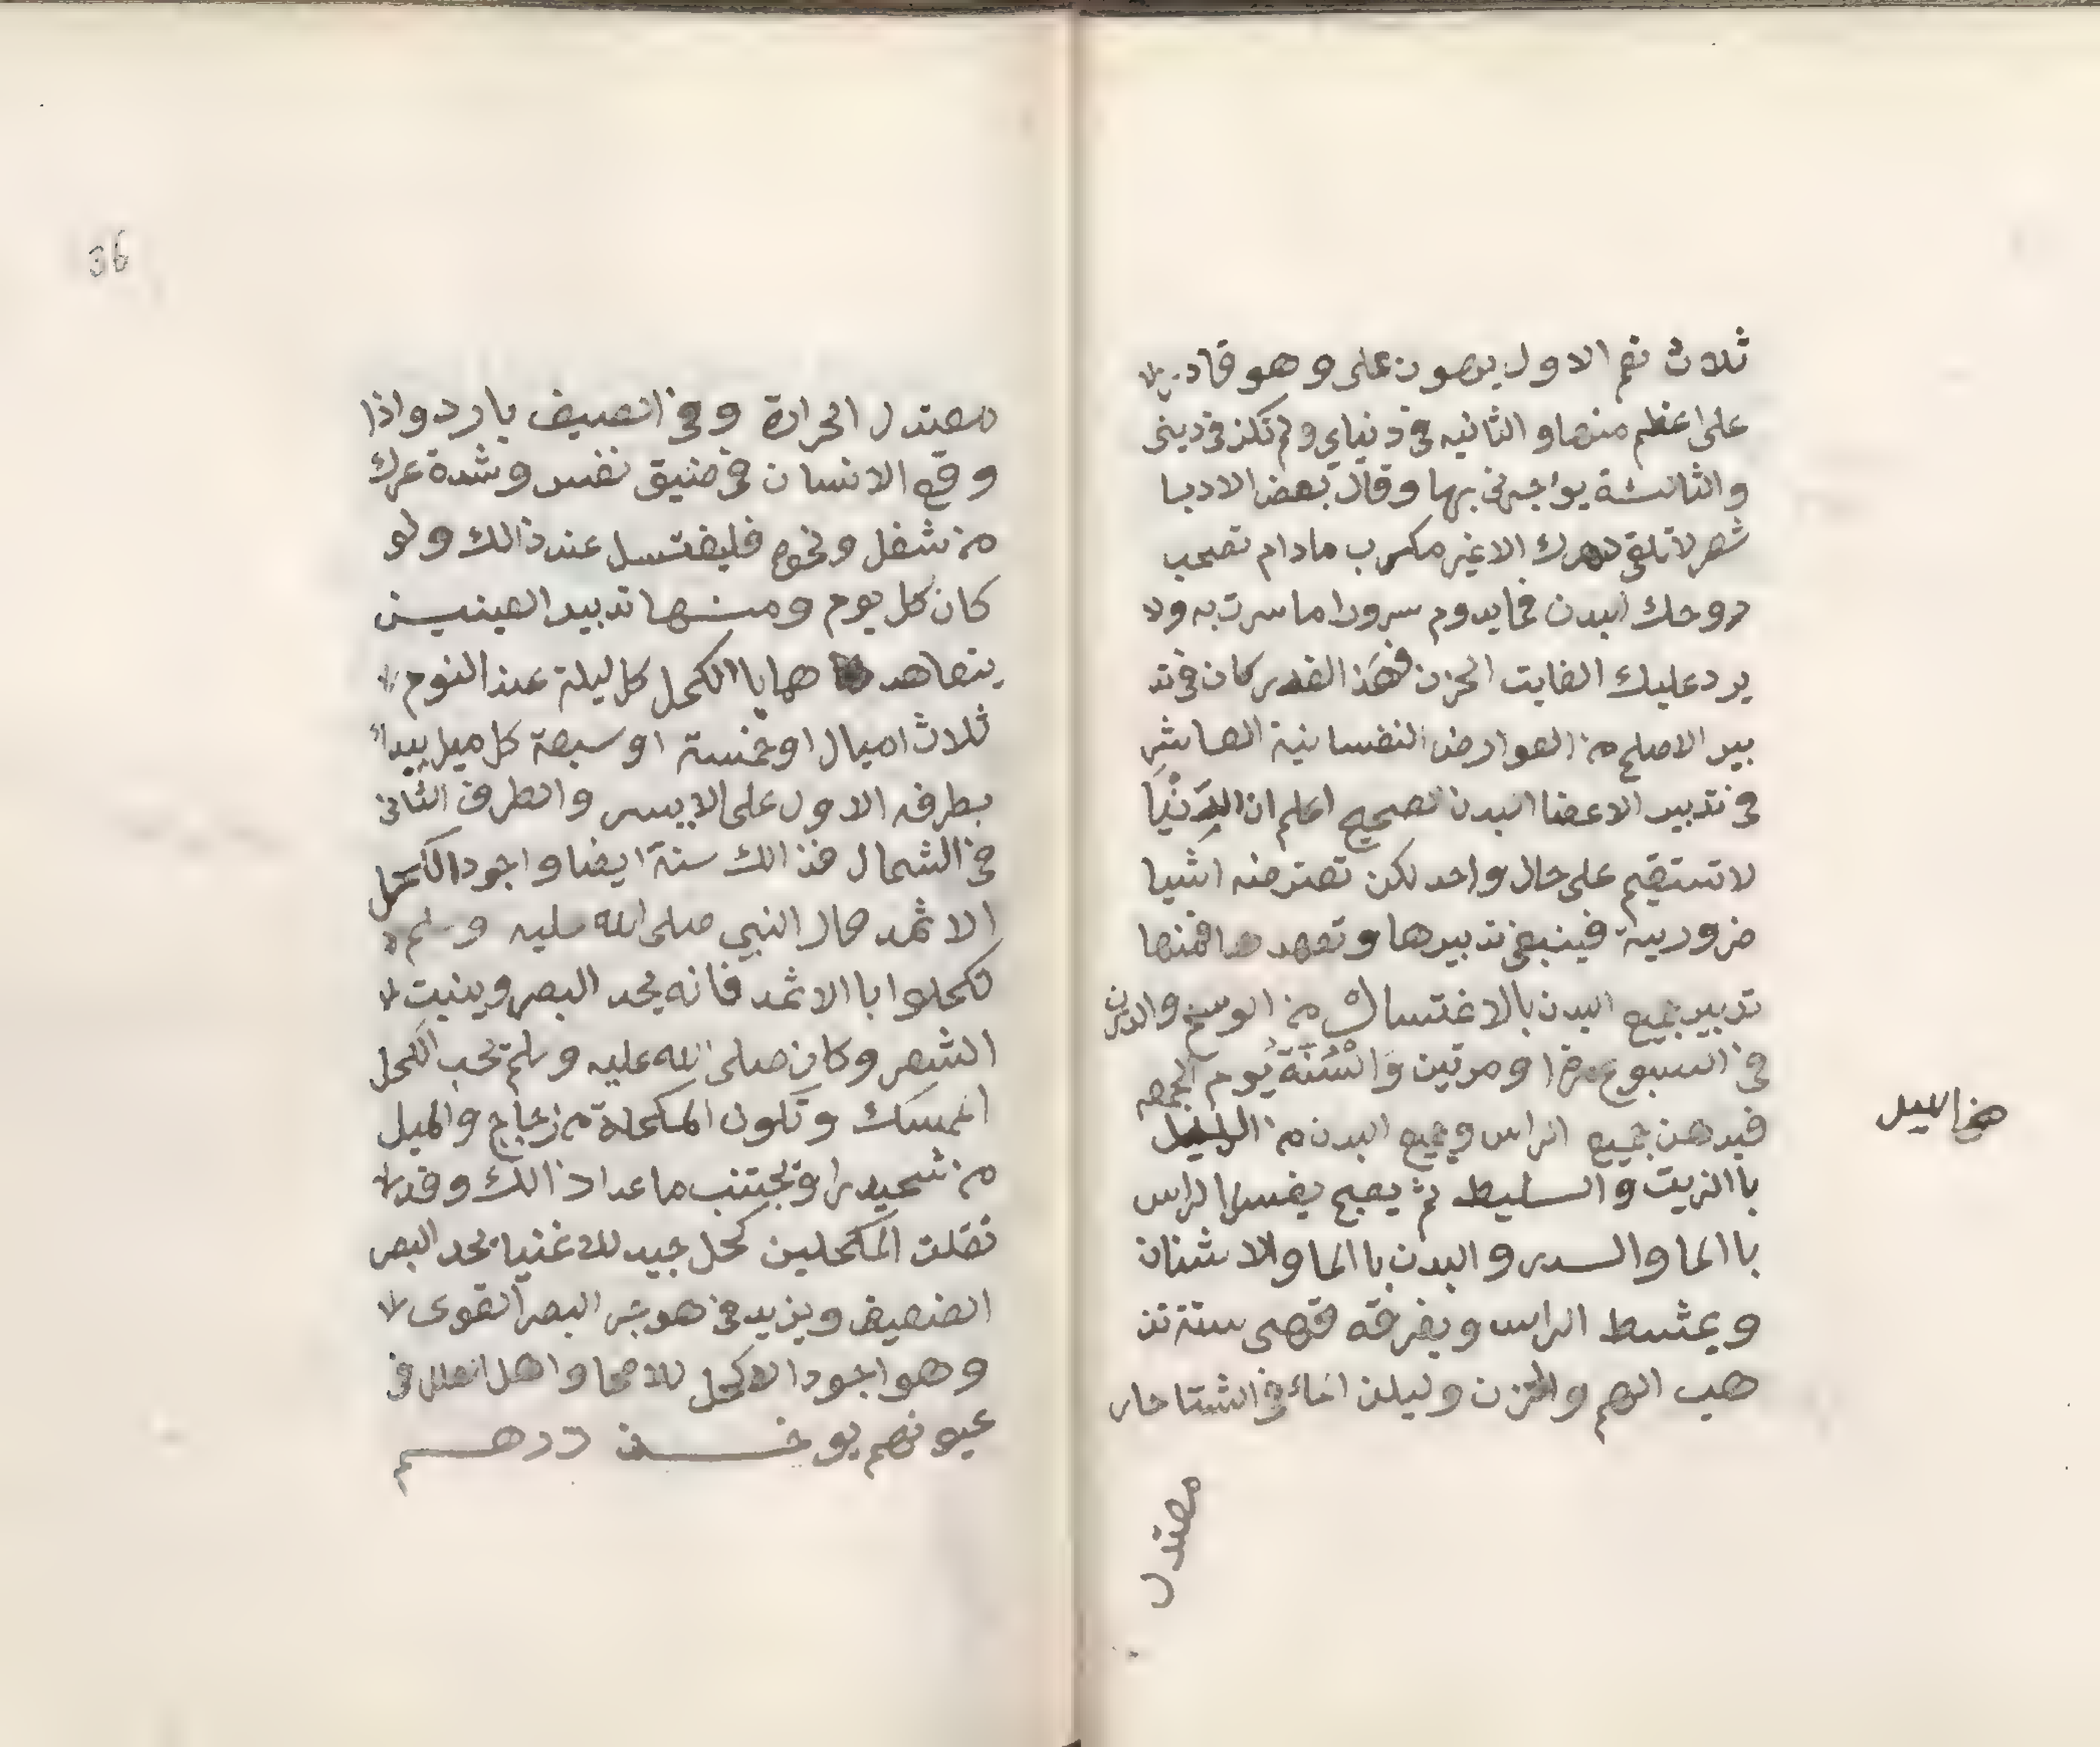 ثلاث نعم الاول يهون على وهو قادر
على اعظم منها والثانيه فى دنياي ولم تكن فى دينى
والثالثة يؤاجرنى بها وقال بعض الادبا
شعر لا تلقى دهرك الا غير مكرب مادام تصحب
روحك البدن فما يدوم سرورا ما سرت به ولا
يرد عليك الفايت الحزن فهذا القدر كان فى تد
بير الاصلح من العوارض النفسانية العاشر
فى تدبير الاعضا البدن الصحيح اعلم ان الدنيا
لا تستقيم على حال واحد لكن تعترضه اشيا
ضرورية فينبغى تدبيرها وتعهدها فمنها
تدبير جميع البدن بالاغتسال من الوسخ والدرن
فى السبوع مرة او مرتين والسنة يوم الجمعه
فيدهن جميع الراس وجميع البدن من الليل
باالزيت والسليط ثم يصبح يغسل الراس
باالما والسدر والبدن باالما والاشنان
ويمشط الراس ويفرقه فهى سنة تذ
هب الهم والحزن وليكن الماء فى الشتا حار
معتدل
36
معتدل الحرارة وفى الصيف بارد واذا
وقع الانسان فى ضيق نفس وشدة عرك
من شغل ونحوه فليغتسل عند ذالك ولو
كان كل يوم ومنها تدبير العينين
يتعاهد هما باالكحل كل ليلة عند النوم
ثلاث اميال او خمسة او سبعة كل ميل يبدا
بطرفه الاول على الايسر والطرف الثانى
فى الشمال فذالك سنة ايضا واجود الكحل
الاثمد قال النبي صلى الله عليه وسلم
تكحلوا باالاثمد فانه يحد البصر وينبت
الشعر وكان صلى الله عليه وسلم يحب الكحل
الممسك وتكون المكحلة من زجاج والميل
من شحيدرا وتجتنب ما عدا ذالك وقد
نقلت المكحلين كحل جيد للاغنيا يحد البصر
الضعيف ويزيد فى البصر القوى
وهو اجود الاكحل للاصحا واهل العلل فى
عيونهم يوخذ درهم